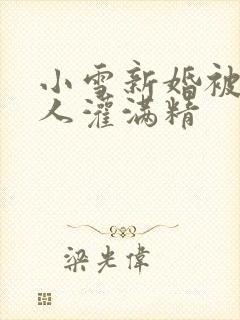 小雪新婚被
人灌满精
梁光伟